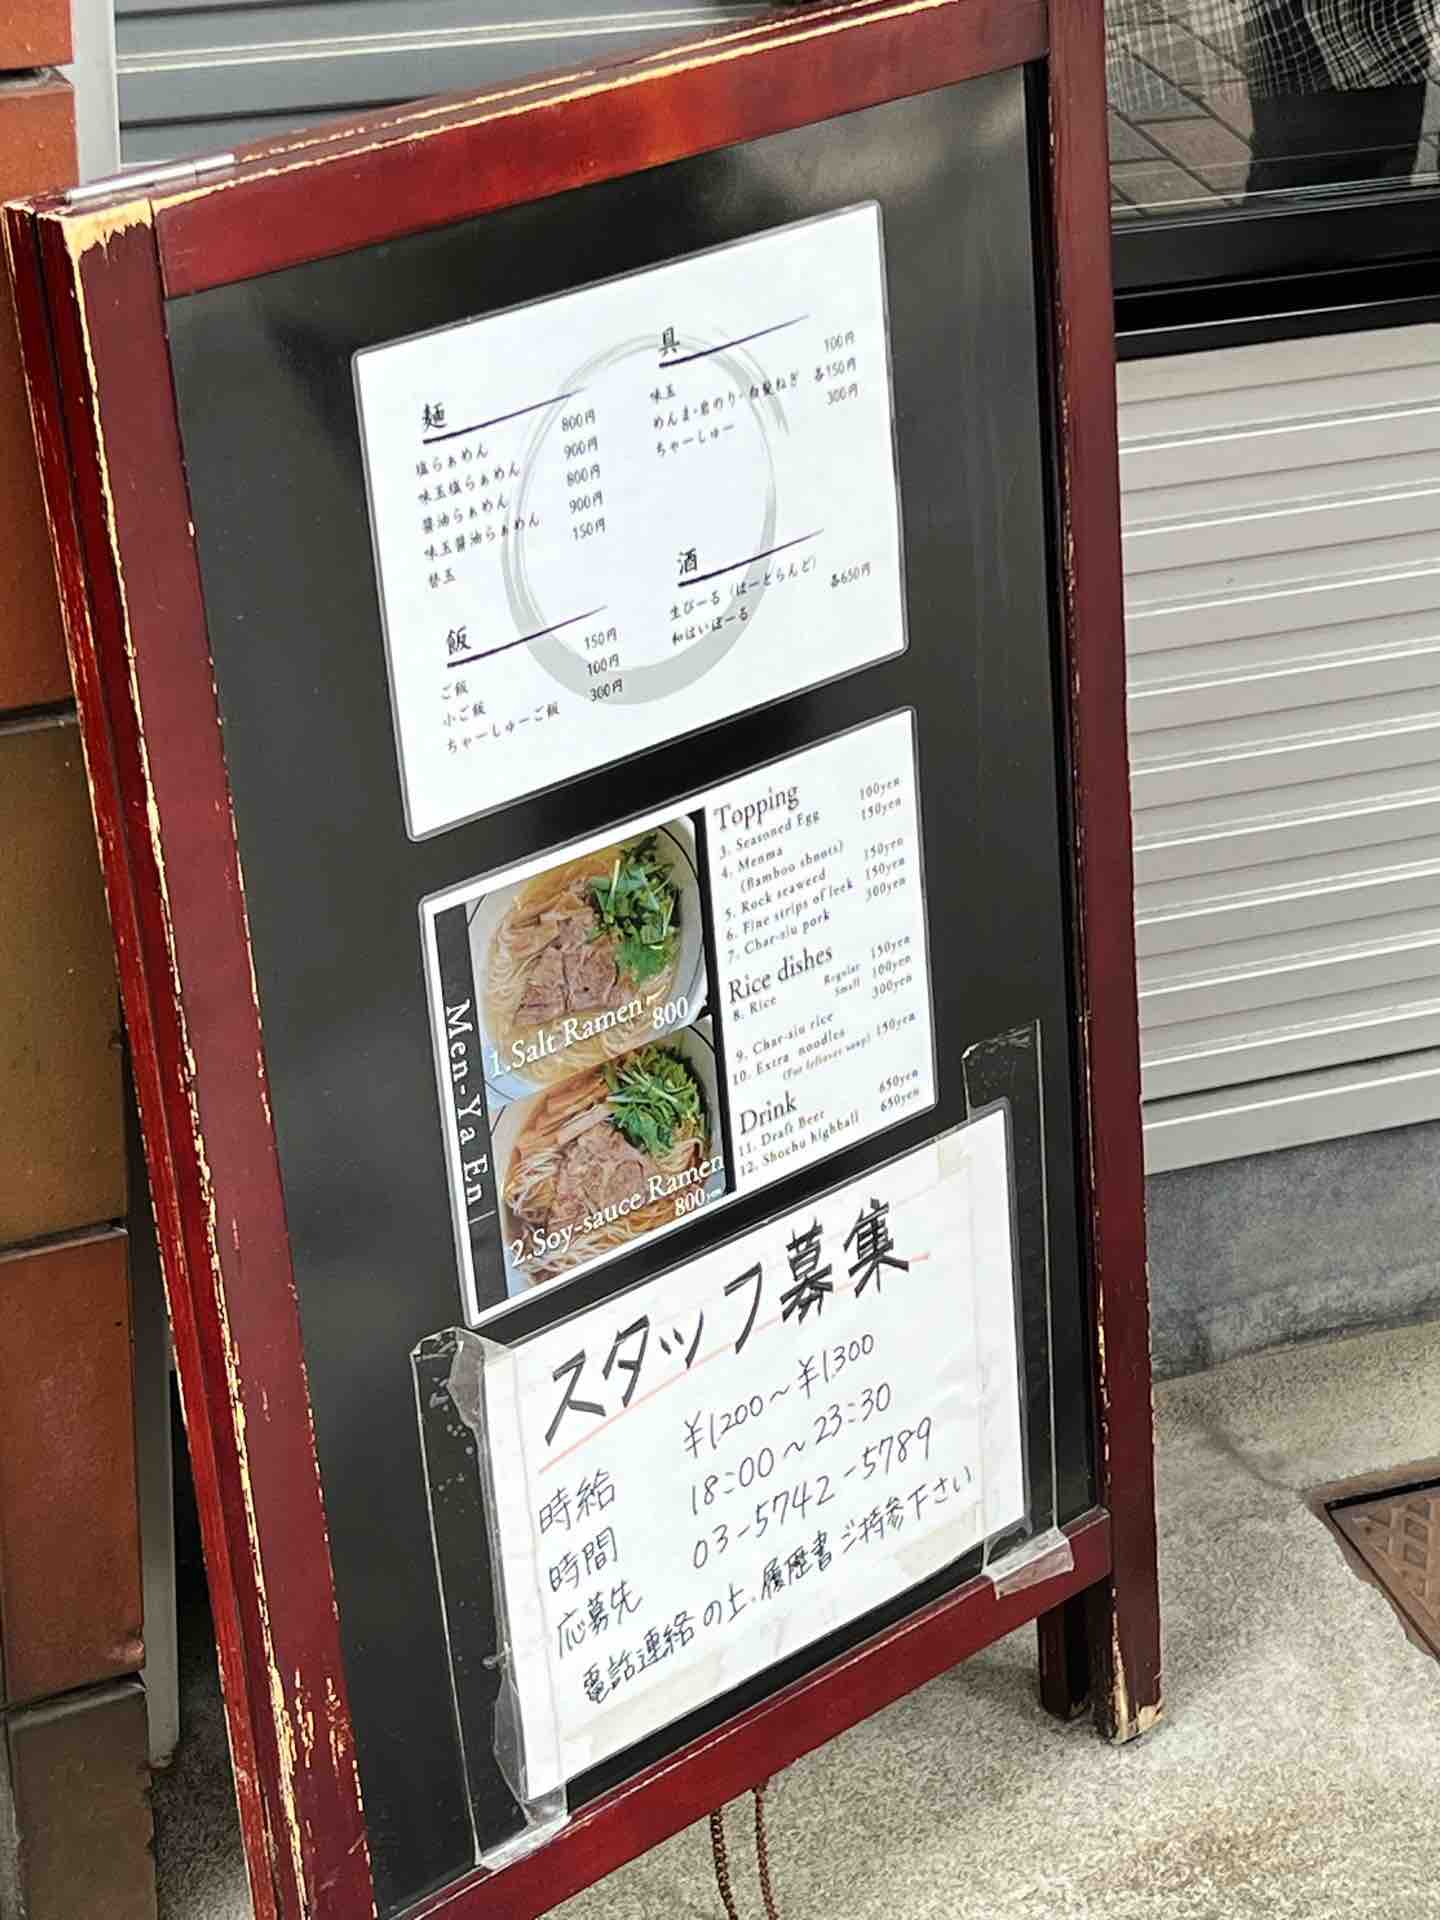 麺
塩らぁめん 800円
味玉塩らぁめん 900円
醤油らぁめん 800円
味玉醤油らぁめん 900円
替玉 150円
飯
ご飯 150円
小ご飯 100円
ちゃーしゅーご飯 300円
具
味玉 100円
めんま・岩のり・白髪ねぎ 各150円
ちゃーしゅー 300円
酒
生びーる（はーとらんど）
和はいぼーる 各650円
Men-Ya En
1.Salt Ramen
800
2.Soy-sauce Ramen
800yen
Topping
3. Seasoned Egg 100yen
4. Menma 150yen
(Bamboo shoots)
5. Rock seaweed 150yen
6. Fine strips of leek 150yen
7. Char-siu pork 300yen
Rice dishes
8. Rice Regular 150yen
Small 100yen
9. Char-siu rice 300yen
10. Extra noodles 150yen
(For leftover soup)
Drink
11. Draft Beer 650yen
12. Shochu highball 650yen
スタッフ募集
時給 ¥1200～¥1300
時間 18:00～23:30
応募先 03-5742-5789
電話連絡の上、履歴書ご持参下さい